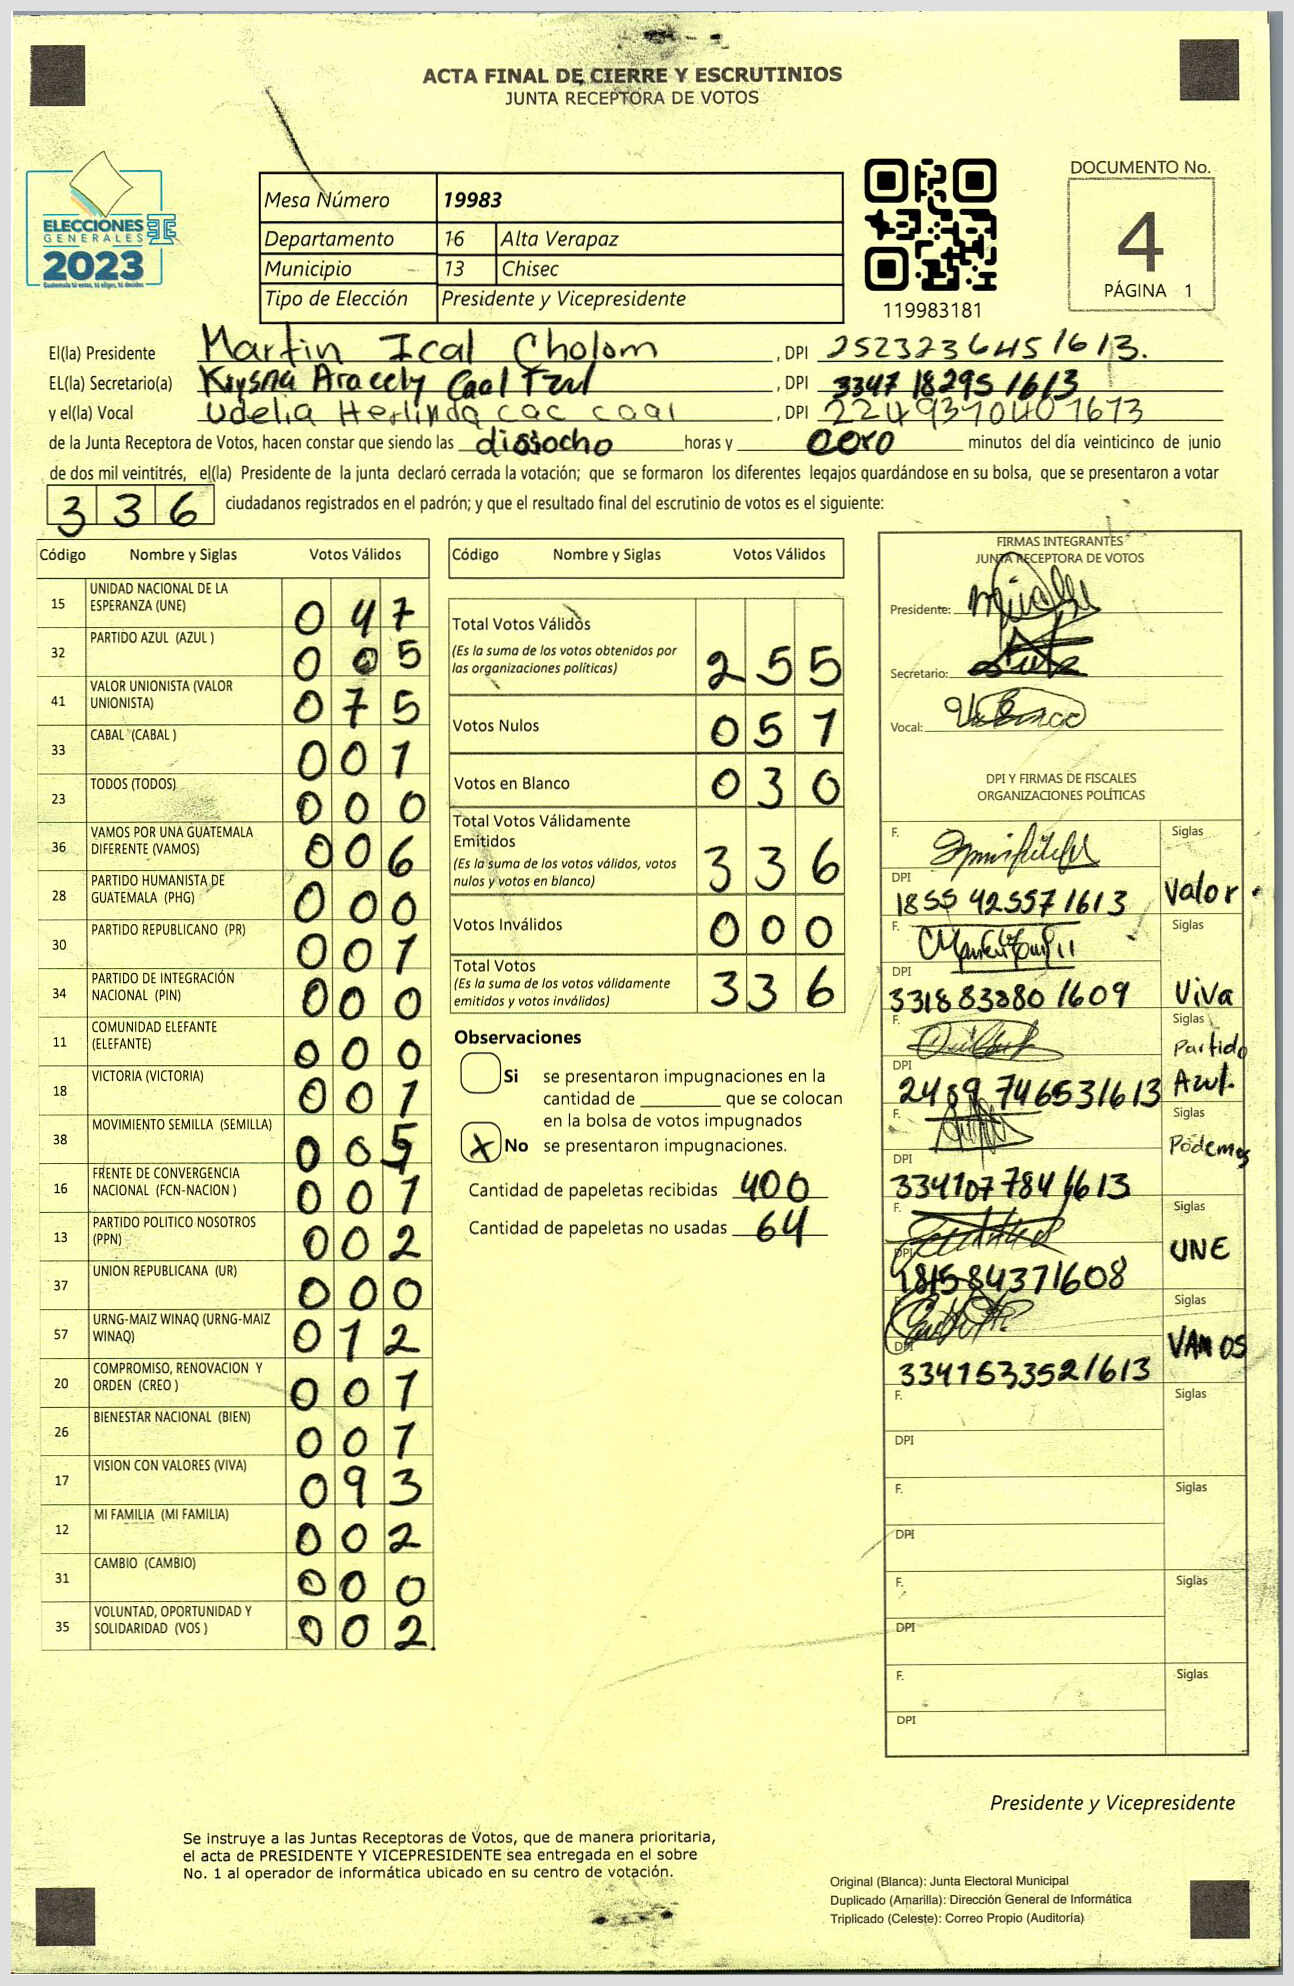 ACTA FINAL DE CIERRE Y ESCRUTINIOS
JUNTA RECEPTORA DE VOTOS
DOCUMENTO No.
4
PÁGINA 1
ELECCIONES
GENERALES
2023
Mesa Número 19983
Departamento 16 Alta Verapaz
Municipio 13 Chisec
Tipo de Elección Presidente y Vicepresidente
119983181
El(la) Presidente Martin Ical Cholom, DPI 2523236451613.
EL(la) Secretario(a) Krysna Aracely Caal Tzul, DPI 3347 18295 1613
y el(la) Vocal Udelia Herlinda cac caal, DPI 2249370401613
de la Junta Receptora de Votos, hacen constar que siendo las dissocho horas y cero minutos del día veinticinco de junio
de dos mil veintitrés, el(la) Presidente de la junta declaró cerrada la votación; que se formaron los diferentes legajos guardándose en su bolsa, que se presentaron a votar
336 ciudadanos registrados en el padrón; y que el resultado final del escrutinio de votos es el siguiente:
Código Nombre y Siglas Votos Válidos
15 UNIDAD NACIONAL DE LA ESPERANZA (UNE) 047
32 PARTIDO AZUL (AZUL ) 005
41 VALOR UNIONISTA (VALOR UNIONISTA) 075
33 CABAL (CABAL ) 001
23 TODOS (TODOS) 000
36 VAMOS POR UNA GUATEMALA DIFERENTE (VAMOS) 006
28 PARTIDO HUMANISTA DE GUATEMALA (PHG) 000
30 PARTIDO REPUBLICANO (PR) 001
34 PARTIDO DE INTEGRACIÓN NACIONAL (PIN) 000
11 COMUNIDAD ELEFANTE (ELEFANTE) 000
18 VICTORIA (VICTORIA) 001
38 MOVIMIENTO SEMILLA (SEMILLA) 005
16 FRENTE DE CONVERGENCIA NACIONAL (FCN-NACION ) 001
13 PARTIDO POLITICO NOSOTROS (PPN) 002
37 UNION REPUBLICANA (UR) 000
57 URNG-MAIZ WINAQ (URNG-MAIZ WINAQ) 012
20 COMPROMISO, RENOVACION Y ORDEN (CREO ) 001
26 BIENESTAR NACIONAL (BIEN) 001
17 VISION CON VALORES (VIVA) 093
12 MI FAMILIA (MI FAMILIA) 002
31 CAMBIO (CAMBIO) 000
35 VOLUNTAD, OPORTUNIDAD Y SOLIDARIDAD (VOS ) 002
Código Nombre y Siglas Votos Válidos
Total Votos Válidos 255
(Es la suma de los votos obtenidos por
las organizaciones políticas)
Votos Nulos 051
Votos en Blanco 030
Total Votos Válidamente
Emitidos 336
(Es la suma de los votos válidos, votos
nulos y votos en blanco)
Votos Inválidos 000
Total Votos 336
(Es la suma de los votos válidamente
emitidos y votos inválidos)
Observaciones
Si se presentaron impugnaciones en la
cantidad de ________ que se colocan
en la bolsa de votos impugnados
X No se presentaron impugnaciones.
Cantidad de papeletas recibidas 400
Cantidad de papeletas no usadas 64
FIRMAS INTEGRANTES
JUNTA RECEPTORA DE VOTOS
Presidente:
Secretario:
Vocal:
DPI Y FIRMAS DE FISCALES
ORGANIZACIONES POLÍTICAS
F. Siglas
DPI 1855 42557 1613 Valor
F. Siglas
DPI 3318 83880 1609 Viva
F. Siglas
DPI 2489 74653 1613 Partido Azul.
F. Siglas
DPI 334107784 1613 Podemos
F. Siglas
DPI 181584371608 UNE
F. Siglas
DPI 3341533521613 VAMOS
F. Siglas
DPI
F. Siglas
DPI
F. Siglas
DPI
F. Siglas
DPI
Presidente y Vicepresidente
Se instruye a las Juntas Receptoras de Votos, que de manera prioritaria,
el acta de PRESIDENTE Y VICEPRESIDENTE sea entregada en el sobre
No. 1 al operador de informática ubicado en su centro de votación.
Original (Blanca): Junta Electoral Municipal
Duplicado (Amarilla): Dirección General de Informática
Triplicado (Celeste): Correo Propio (Auditoría)